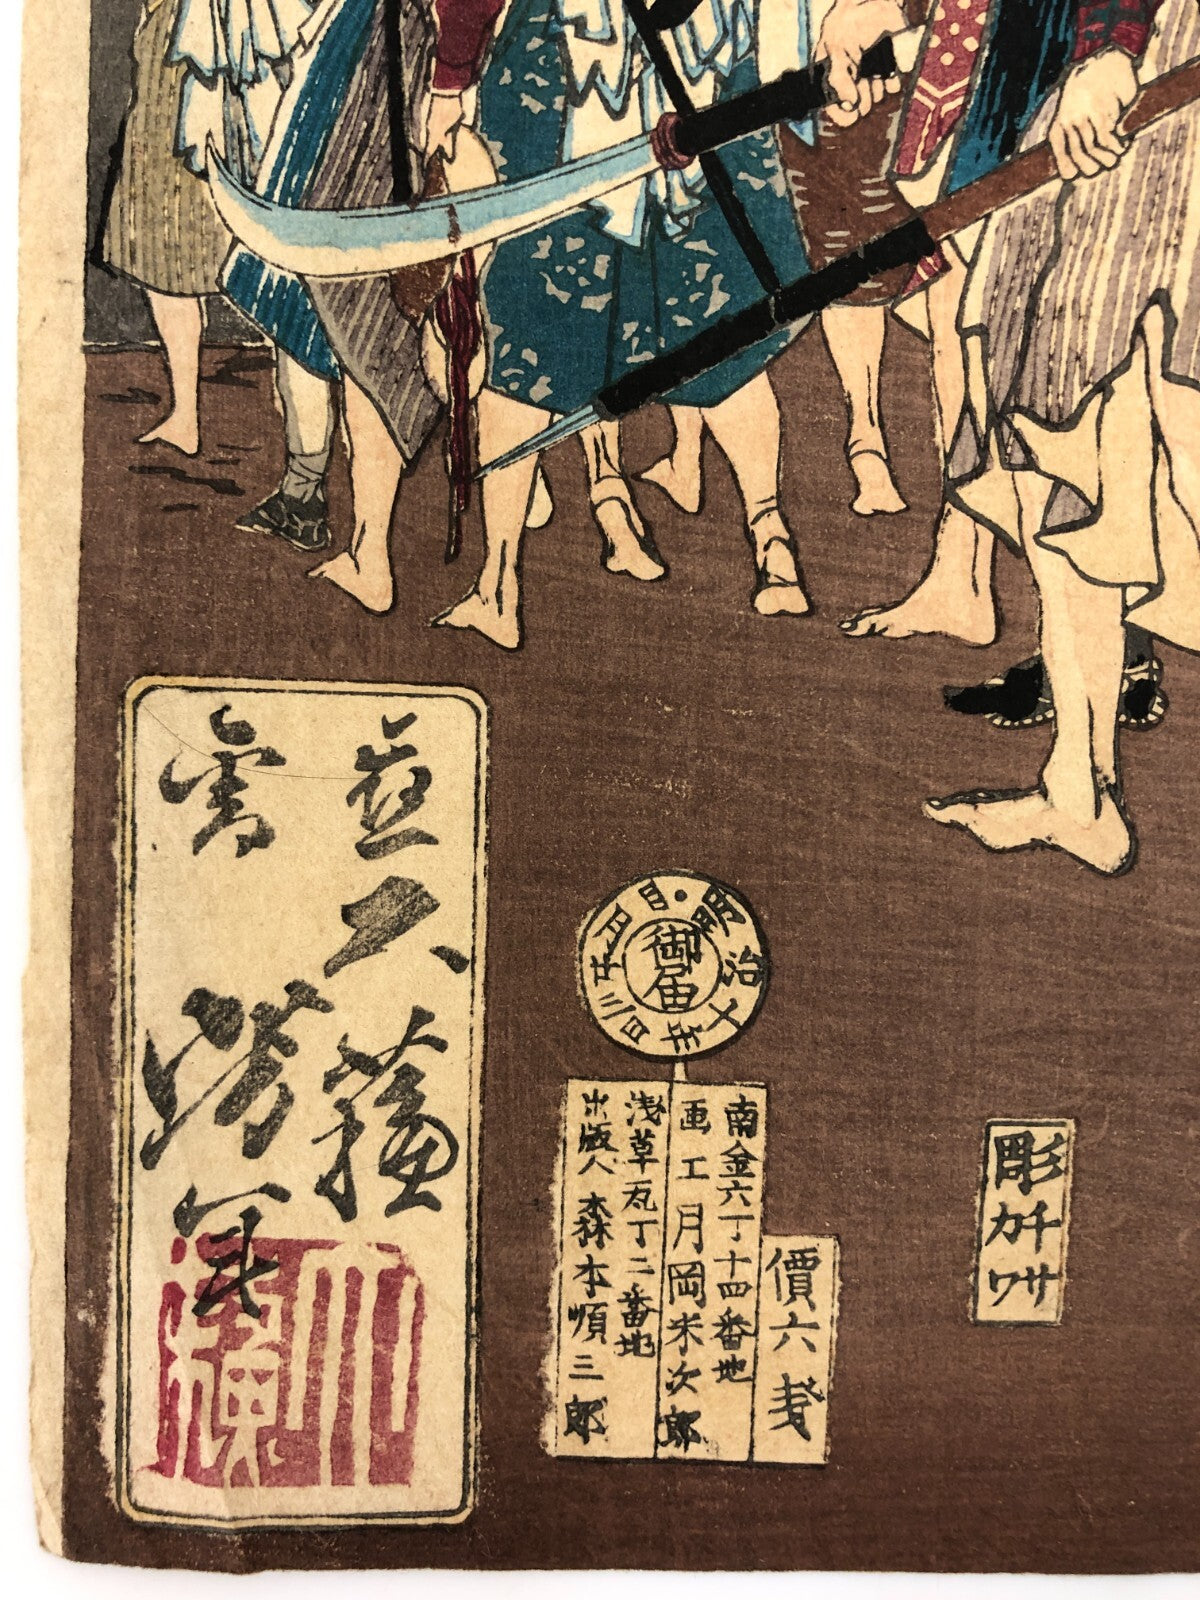 彫
チサ
カワ
價六戔
南金六丁十四番地
画工月岡米次郎
浅草瓦丁二番地
出版人 森本順三郎
御届
明治十年
應需
大蘓芳年